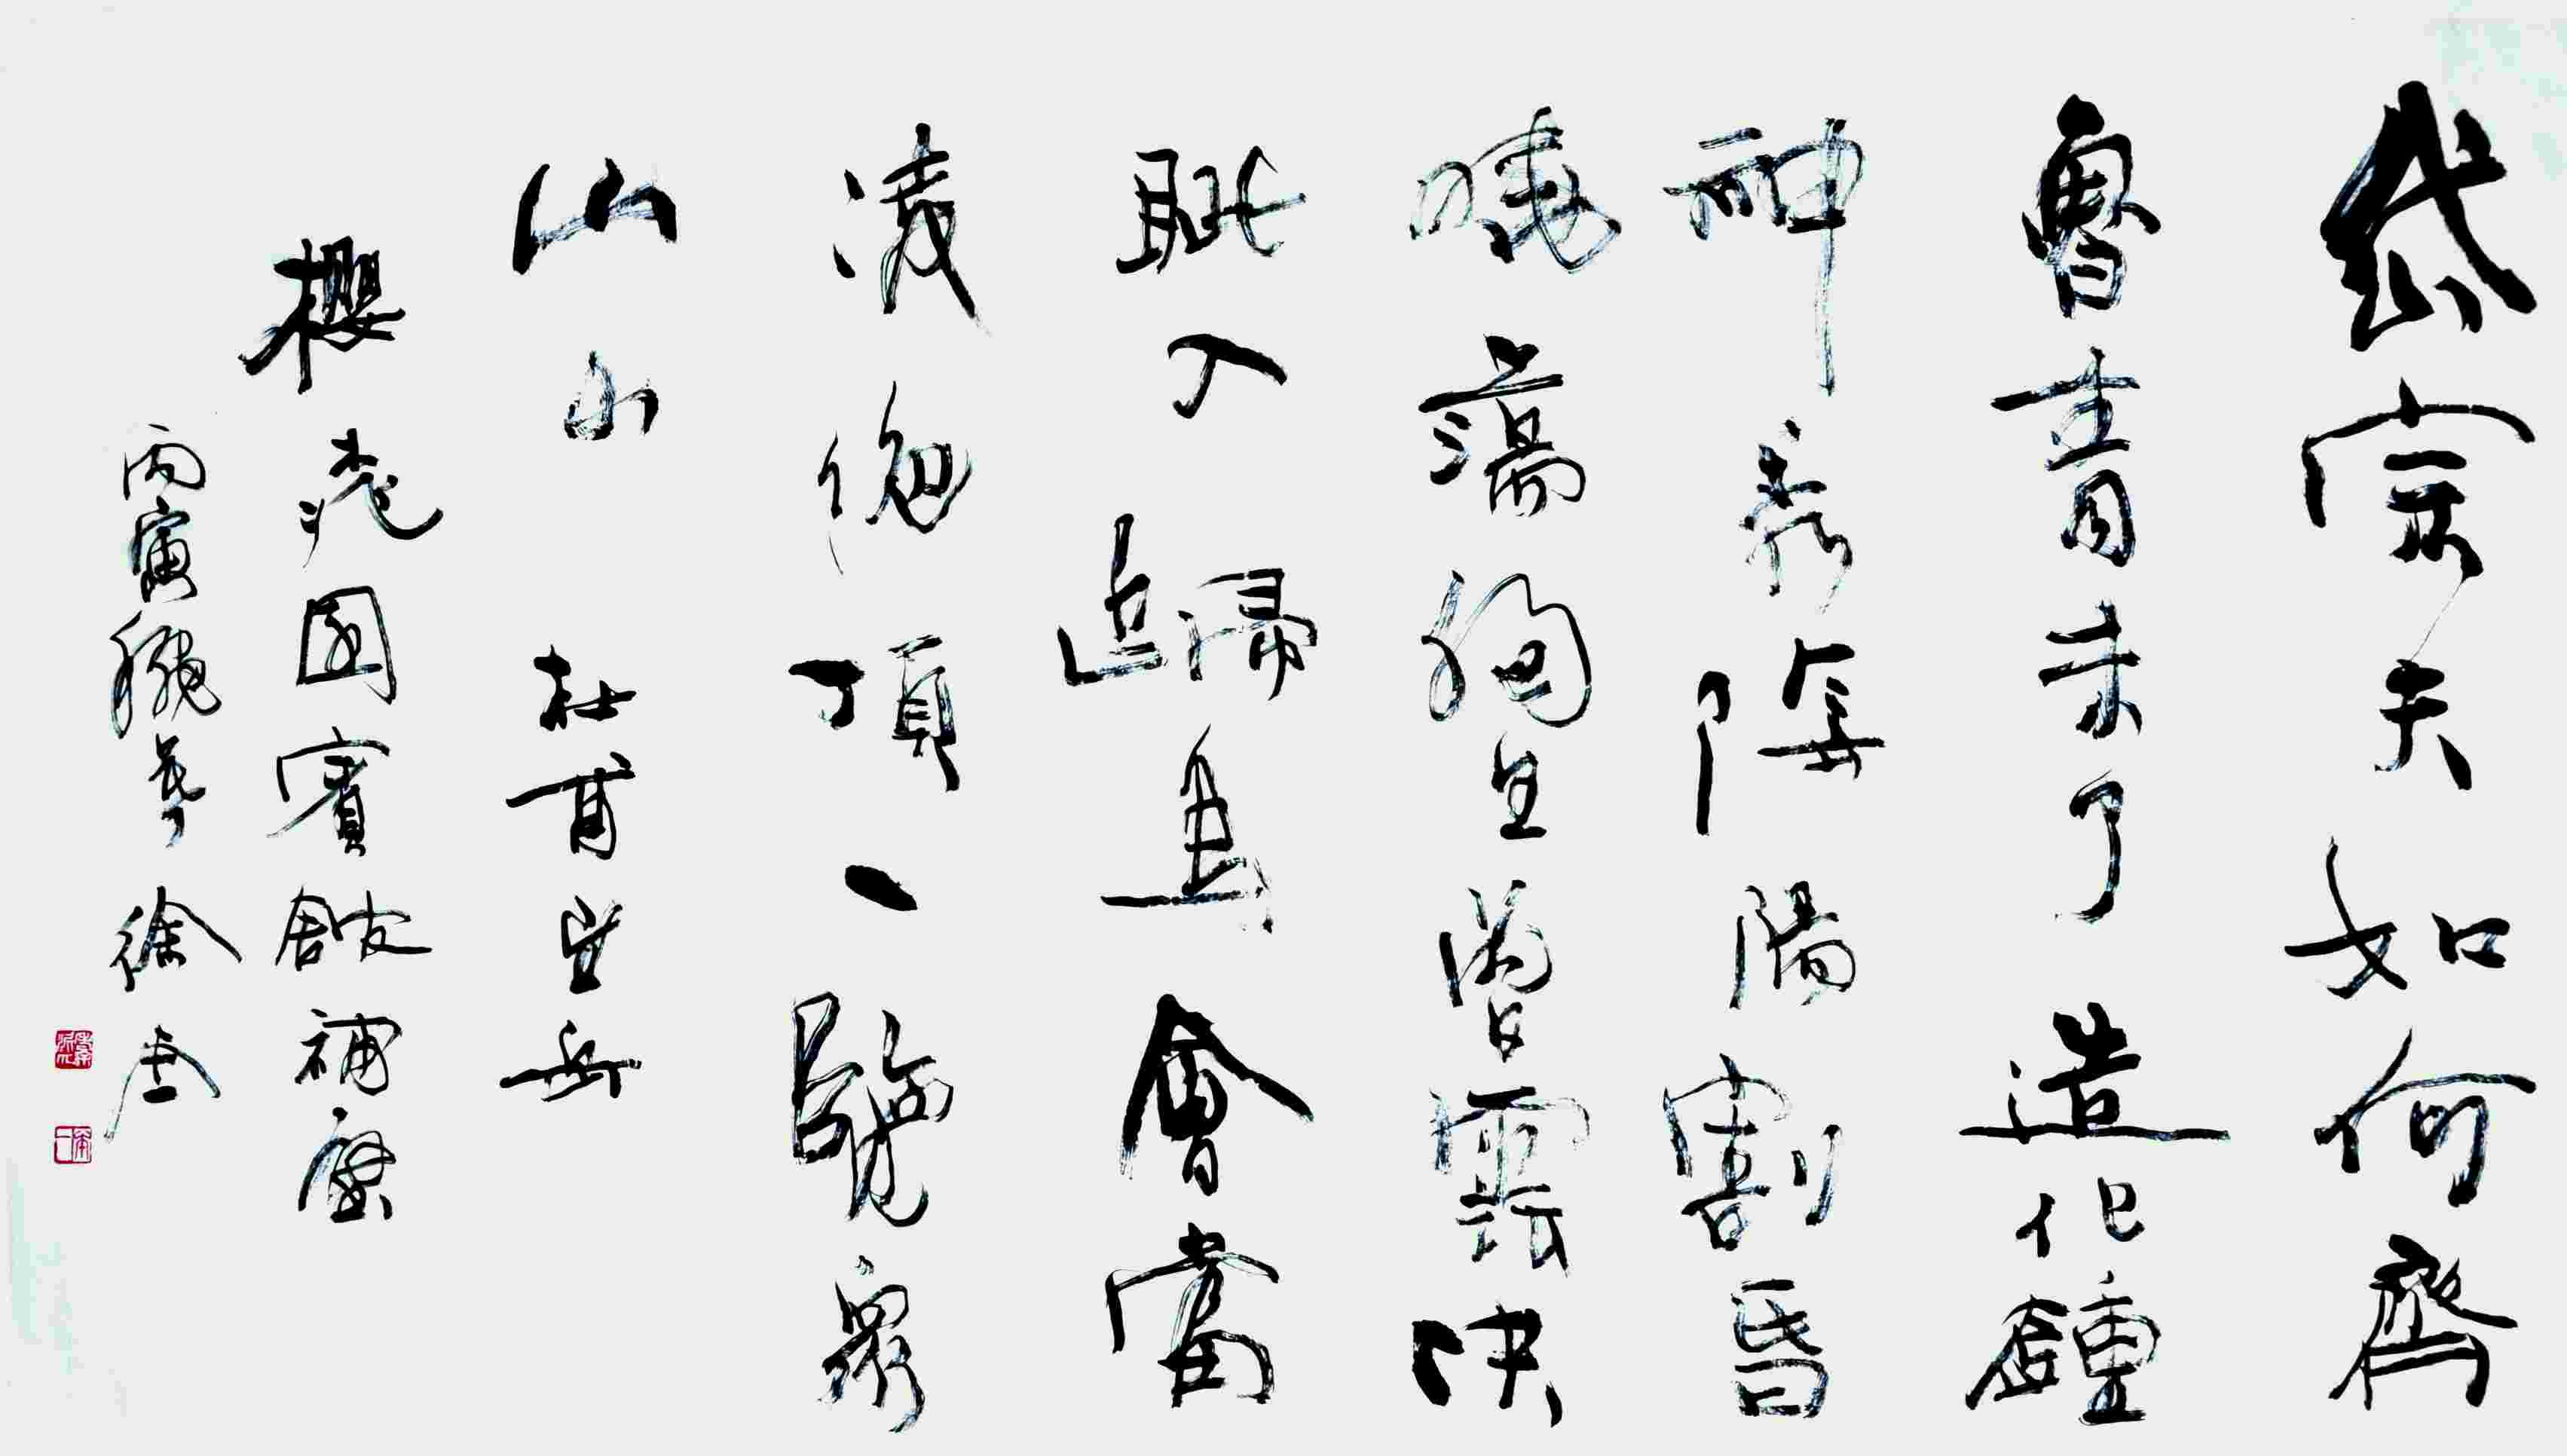 岱宗夫如何齊
魯青未了造化鍾
神秀陰陽割昏
曉蕩胸生曾雲決
眦入歸鳥會當
凌絕頂一覽眾
山小 杜甫望岳
櫻桃園賓館補壁
丙寅穐 徐